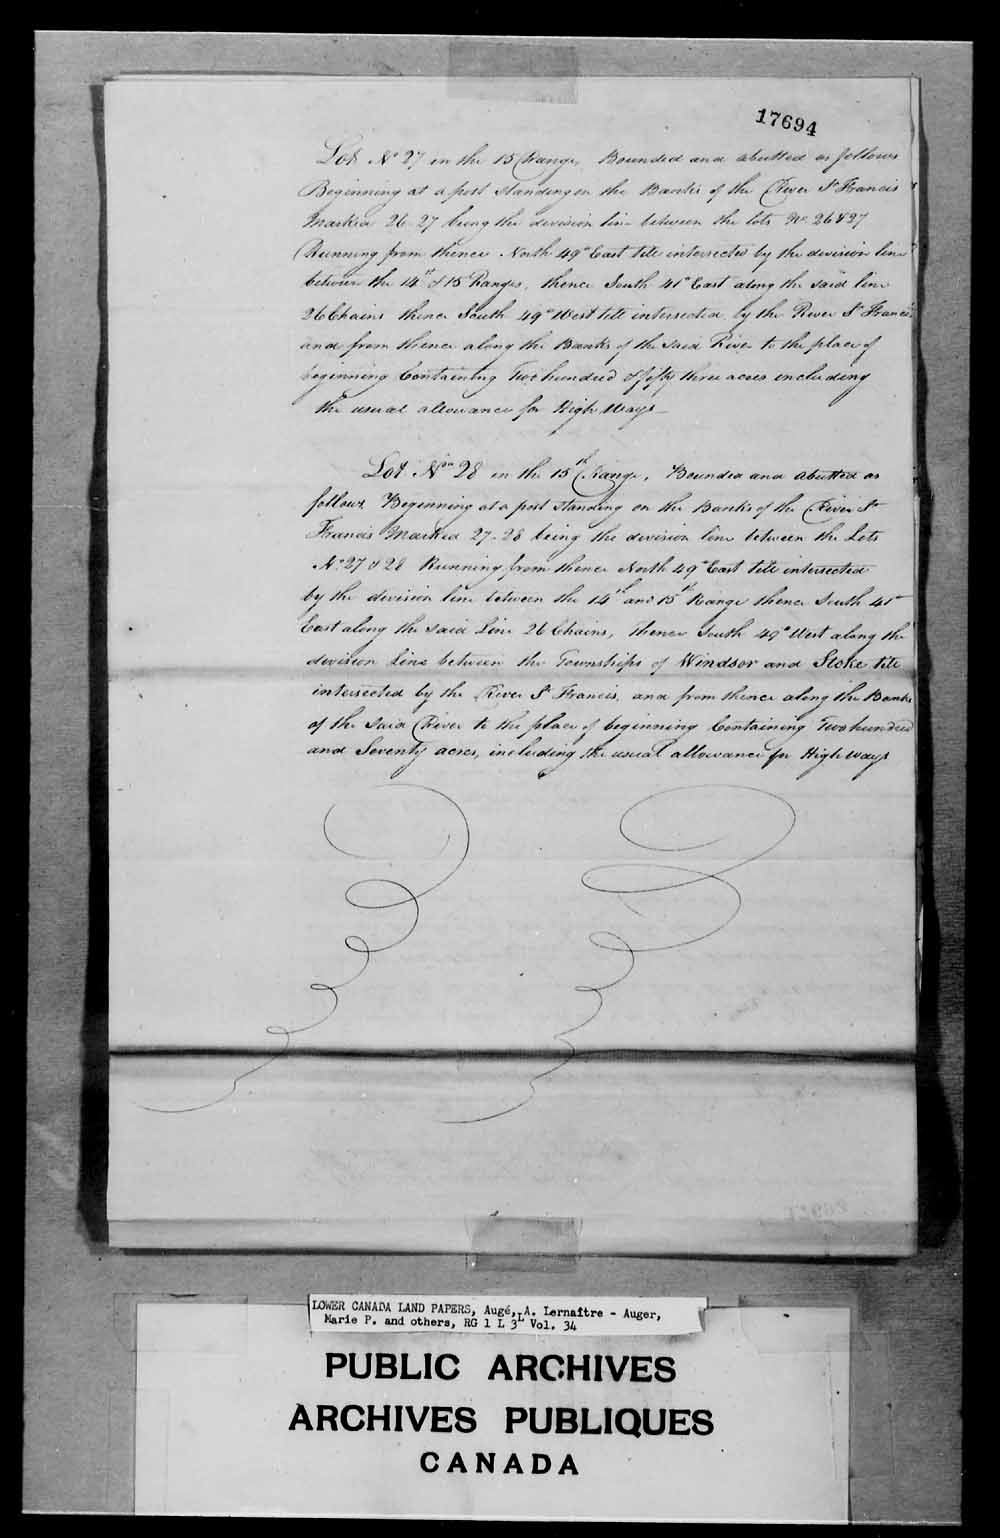 17694
Lot No 27 in the 15 Range, Bounded and abutted as follows
Beginning at a post standing on the Banks of the River St Francis
Marked 26-27 being the division line between the lots No 26 & 27
Running from thence North 49° East till intersected by the division line
between the 14th & 15 Ranges, thence South 41° East along the said line
26 Chains thence South 49° West till intersected by the River St Francis
and from thence along the Banks of the said River to the place of
beginning Containing Two hundred & fifty three acres including
the usual allowance for High Ways
Lot No 28 in the 15th Range, Bounded and abutted as
follows, Beginning at a post standing on the Banks of the River St
Francis Marked 27-28 being the division line between the Lots
No 27 & 28 Running from thence North 49° East till intersected
by the division line between the 14th and 15th Range thence South 41°
East along the said Line 26 Chains, thence South 49° West along the
division line between the Townships of Windsor and Stoke till
intersected by the River St Francis, and from thence along the Banks
of the said River to the place of beginning Containing Two hundred
and Seventy acres, including the usual allowance for High ways
LOWER CANADA LAND PAPERS, Augé, A. Lernaître - Auger,
Marie P. and others, RG 1 L 3L Vol. 34
PUBLIC ARCHIVES
ARCHIVES PUBLIQUES
CANADA